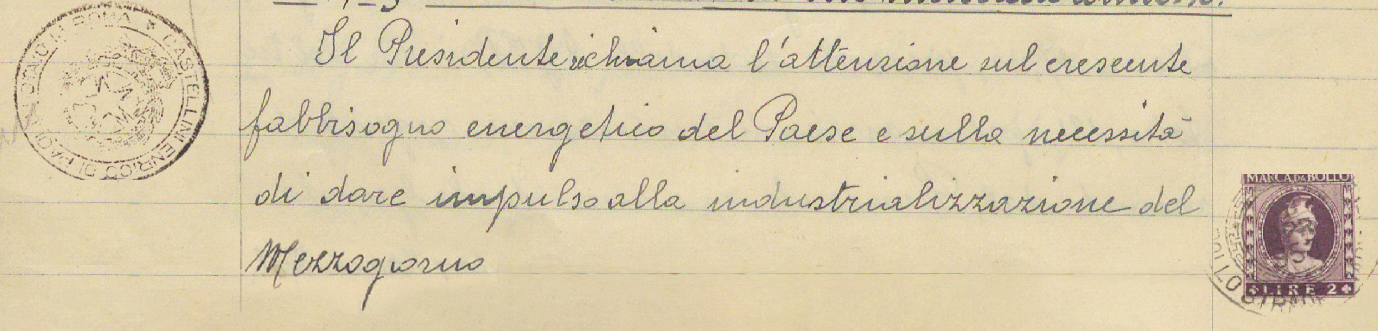 Il Presidente richiama l'attenzione sul crescente
fabbisogno energetico del Paese e sulla necessità
di dare impulso alla industrializzazione del
Mezzogorno
CASTELLINI ENRICO DI
ROMA
MARCA DA BOLLO
LIRE 2